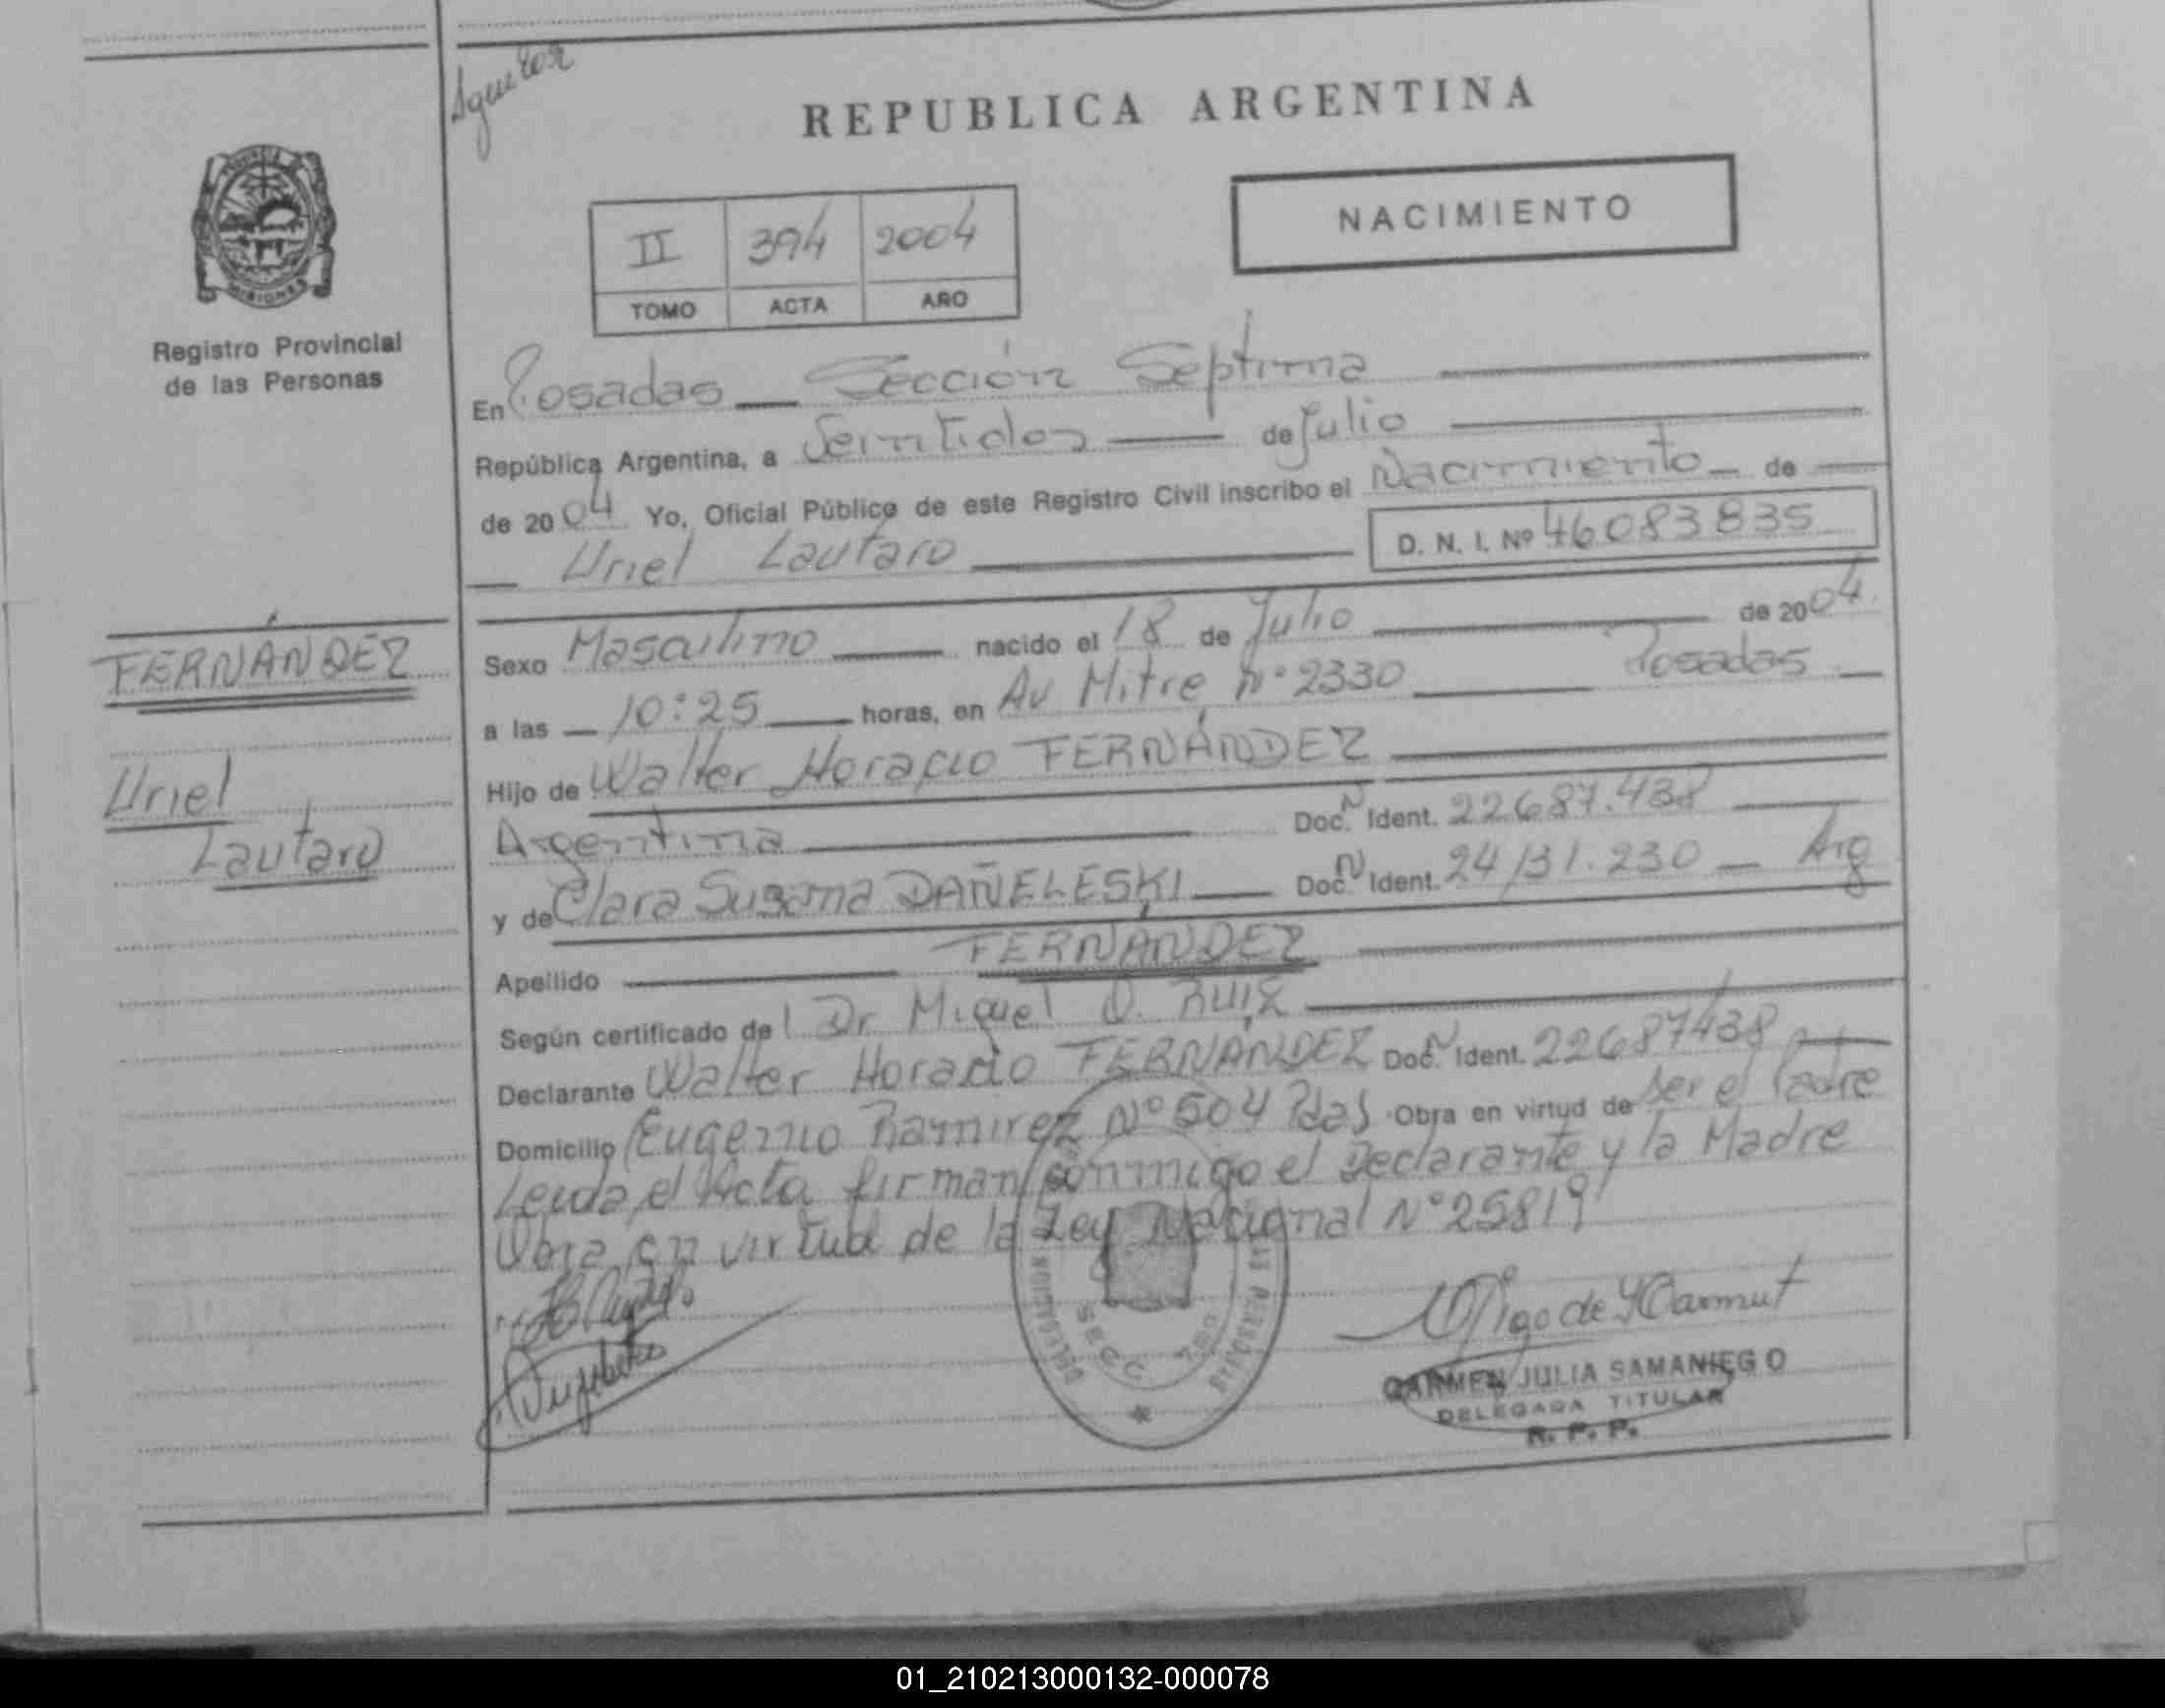 Aguilar
REPUBLICA ARGENTINA
NACIMIENTO
II 394 2004
TOMO ACTA AÑO
MISIONES
Registro Provincial
de las Personas
En Posadas — Sección Septima
República Argentina, a Veintidos — de Julio
de 2004 Yo, Oficial Público de este Registro Civil inscribo el Nacimiento — de
— Uriel Lautaro — D. N. I. Nº 46083835
FERNÁNDEZ
Uriel
Lautaro
Sexo Masculino — nacido el 18 de Julio — de 2004.
a las — 10:25 — horas, en Av Mitre Nº 2330 — Posadas —
Hijo de Walter Horacio FERNÁNDEZ —
Argentina — Doc. N Ident. 22687.438 —
y de Clara Susana DAÑELESKI — Doc. N Ident. 24131.230 — Arg
Apellido — FERNÁNDEZ —
Según certificado del Dr Miguel O. RUIZ —
Declarante Walter Horacio FERNÁNDEZ Doc. N Ident. 22687438 —
Domicilio Eugenio Ramirez Nº 504 Pdas Obra en virtud de ser el Padre
Leida el Acta firman conmigo el Declarante y la Madre
Obra en virtud de la Ley Nacional Nº 25819
DELEGACION SECC. 7ma LAS PERSONAS
CARMEN JULIA SAMANIEGO
DELEGADA TITULAR
R. P. P.
01_210213000132-000078